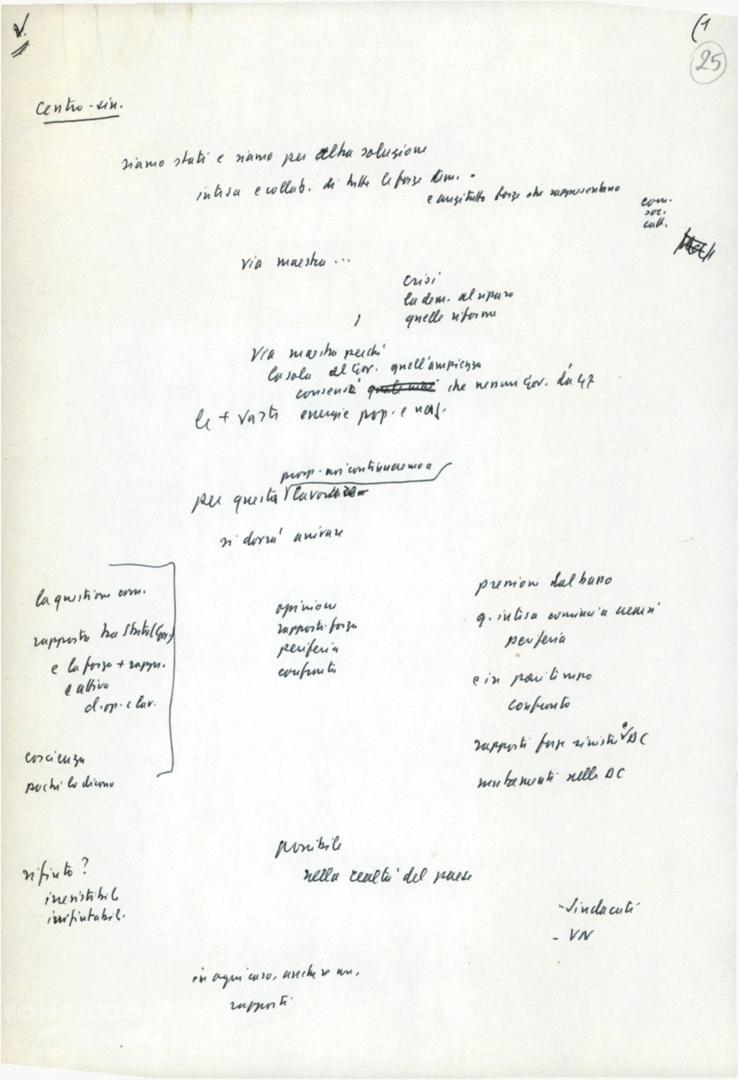 V.
(1
25
Centro-sin.
siamo stati e siamo per altra soluzione
intesa e collab. di tutte le forze dem.
e anzitutto forze che rappresentano
com.
soc.
catt.
via maestra ...
crisi
la dem. al riparo
quelle riforme
Via maestra perché
la sola al Gov. quell'ampiezza
consensi che nessun Gov. da 47
le + vasti energie pop. e naz.
prosp. noi continueremo a
per questa lavorare
si dovrà arrivare
la questione com.
rapporto tra Stato (Gov)
e la forza + rappr.
e attiva
cl. op. e lav.
coscienza
pochi lo dicono
opinione
rapporti forza
periferia
confronto
pressione dal basso
q. intesa comincia
periferia
e in pari tempo
confronto
rapporti forze sinistra e DC
mutamenti nella DC
rifiuto?
irresistibile
irrifiutabile.
possibile
nella realtà del paese
- Sindacati
- VN
in ogni caso, anche se
rapporti